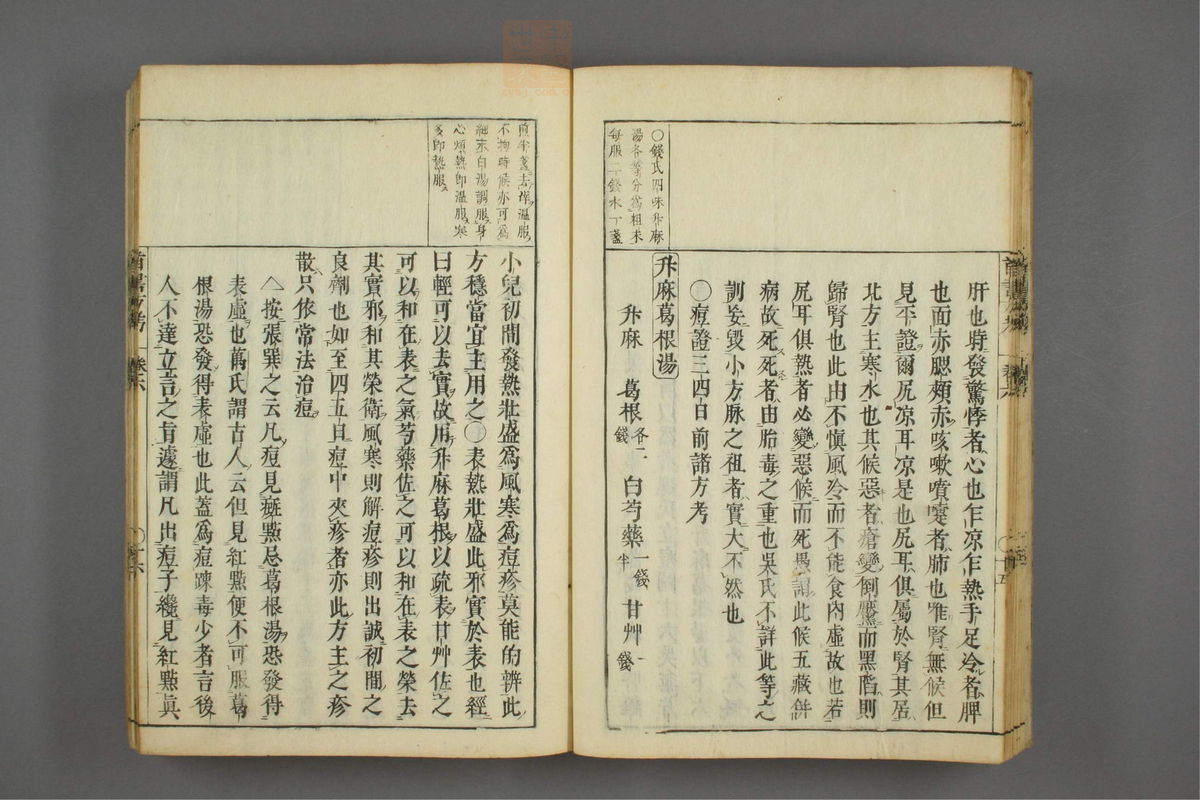 ○錢氏四味升麻
湯各等分爲粗末
每服二錢水一盞
肝也時發驚悸者心也乍凉乍熱手足冷者脾
也面赤腮頰赤咳嗽噴嚏者肺也唯腎無候但
見平證爾尻凉耳凉是也尻耳俱屬於腎其居
北方主寒水也其候惡者瘡變倒黶而黑陷則
歸腎也此由不愼風冷而不能食內虛故也若
尻耳俱熱者必變惡候而死愚謂此候五藏併
病故死死者由胎毒之重也吳氏不詳此等之
訓妄毀小方脉之祖者實大不然也
○痘證三四日前諸方考
升麻葛根湯
升麻 葛根各二錢 白芍藥一錢半 甘艸一錢
煎半盞去滓溫服
不拘時候亦可爲
細末白湯調服身
心煩熱即溫服寒
多即熱服
小兒初間發熱壯盛爲風寒爲痘疹莫能的辨此
方穩當宜主用之○表熱壯盛此邪實於表也經
曰輕可以去實故用升麻葛根以疏表甘艸佐之
可以和在表之氣芍藥佐之可以和在表之榮去
其實邪和其榮衛風寒則解痘疹則出誠初間之
良劑也如至四五日痘中夾疹者亦此方主之疹
散只依常法治痘
按張巽之云凡痘見斑點忌葛根湯恐發得
表虛也萬氏謂古人云但見紅點便不可服葛
根湯恐發得表虛也此蓋爲痘踈毒少者言後
人不達立言之旨遽謂凡出痘子纔見紅點眞
卷六